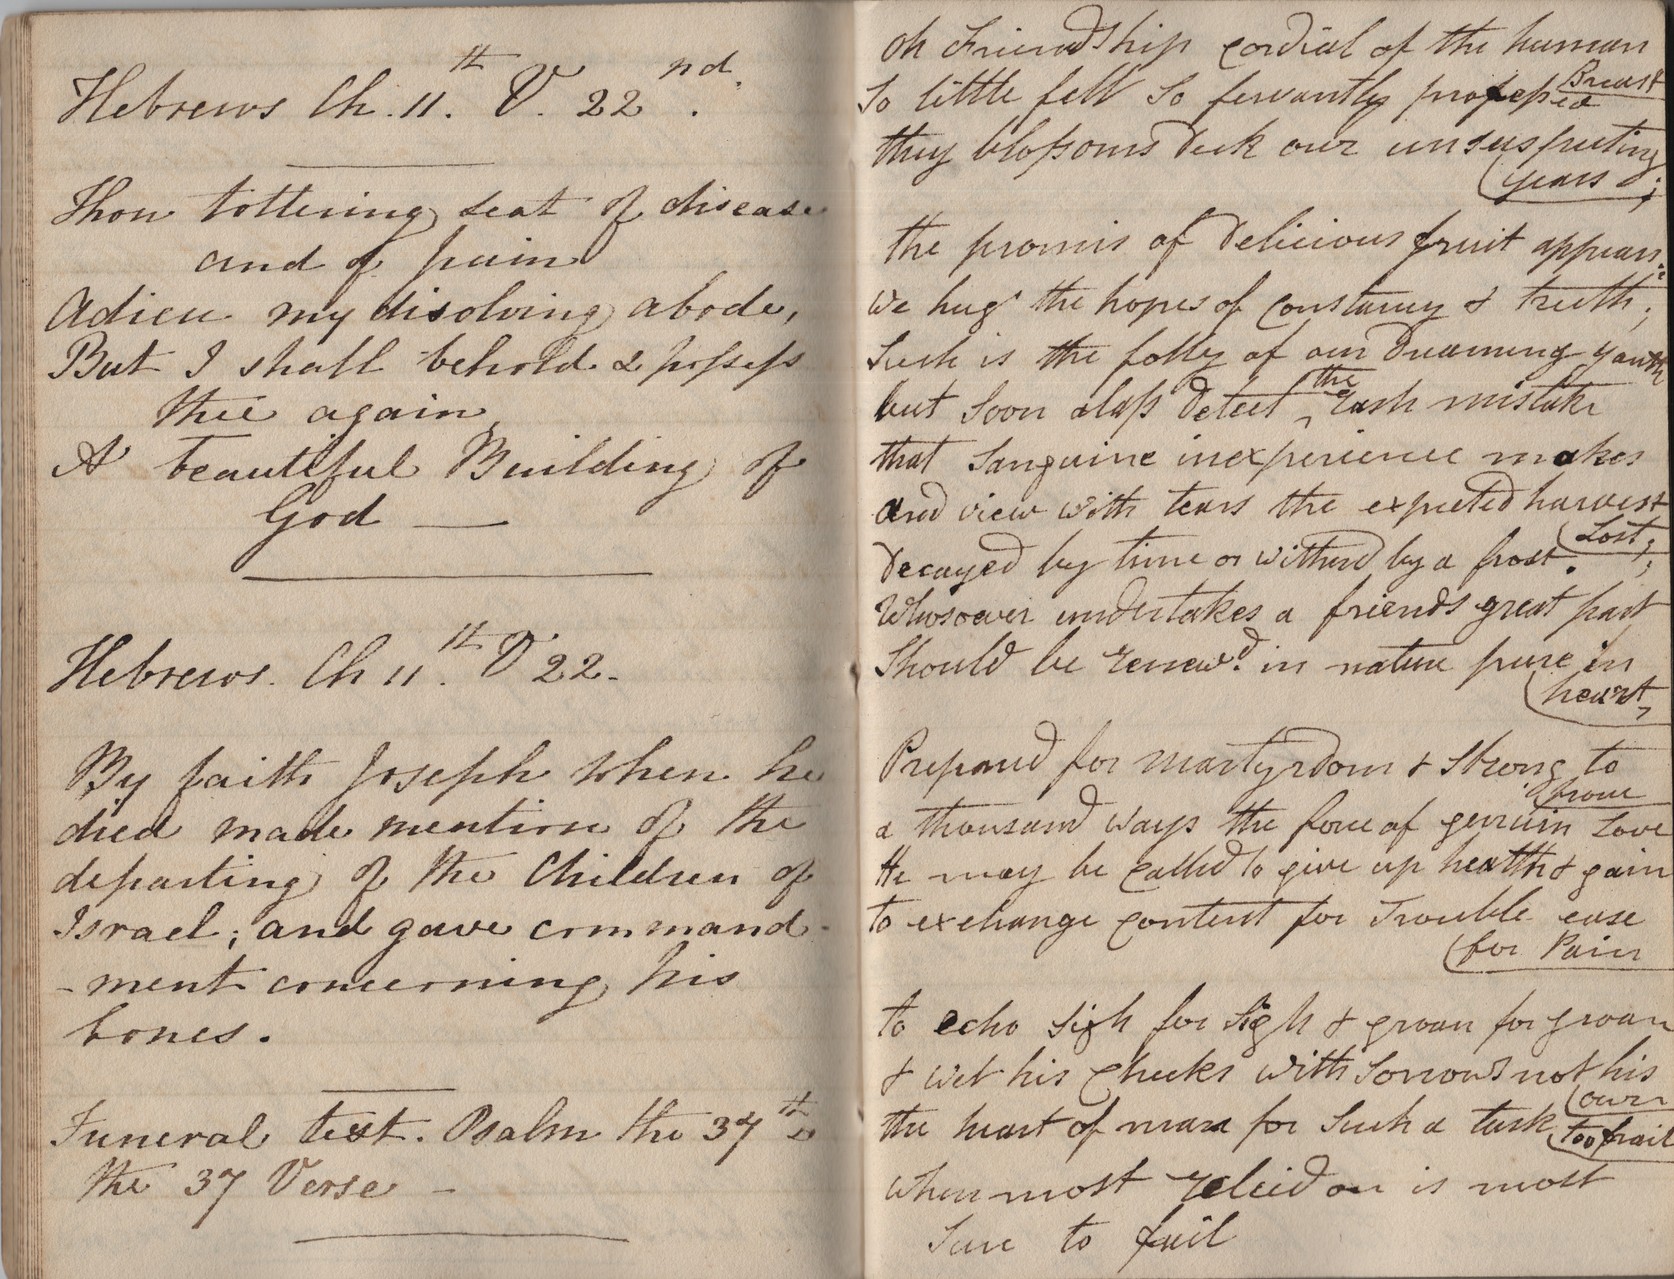 Hebrews Ch. 11.th V. 22nd.
Thou tottering seat of disease
and of pain
Adieu my disolving abode,
But I shall behold & possess
thee again
A beautiful Building of
God —
Hebrews. Ch 11.th V 22.
By faith Joseph when he
died made mention of the
departing of the Children of
Israel; and gave command-
-ment concerning his
bones.
Funeral text. Psalm the 37th
the 37 Verse –
Oh Friendship cordial of the human
Breast
So little felt so fervantly professed
they blossoms deck our unsuspecting
years;
the promis of delicious fruit appears.
We hug the hopes of constancy & truth;
Such is the folly of our dreaming youth
but soon alass detect the rash mistake
that sanguine inexperience makes
and view with tears the expected harvest
Lost;
decayed by time or witherd by a frost.
Whosoever undertakes a friends great part
Should be renewd. in nature pure in
heart,
Prepared for martyrdom & strong to
prove
a thousand ways the force of genuin Love
He may be called to give up health & gain
to exchange content for trouble ease
for Pain
to echo sigh for sigh & groan for groan
& wet his cheeks with sorrows not his
own
the heart of man for such a task
too frail
When most relied on is most
Sure to fail